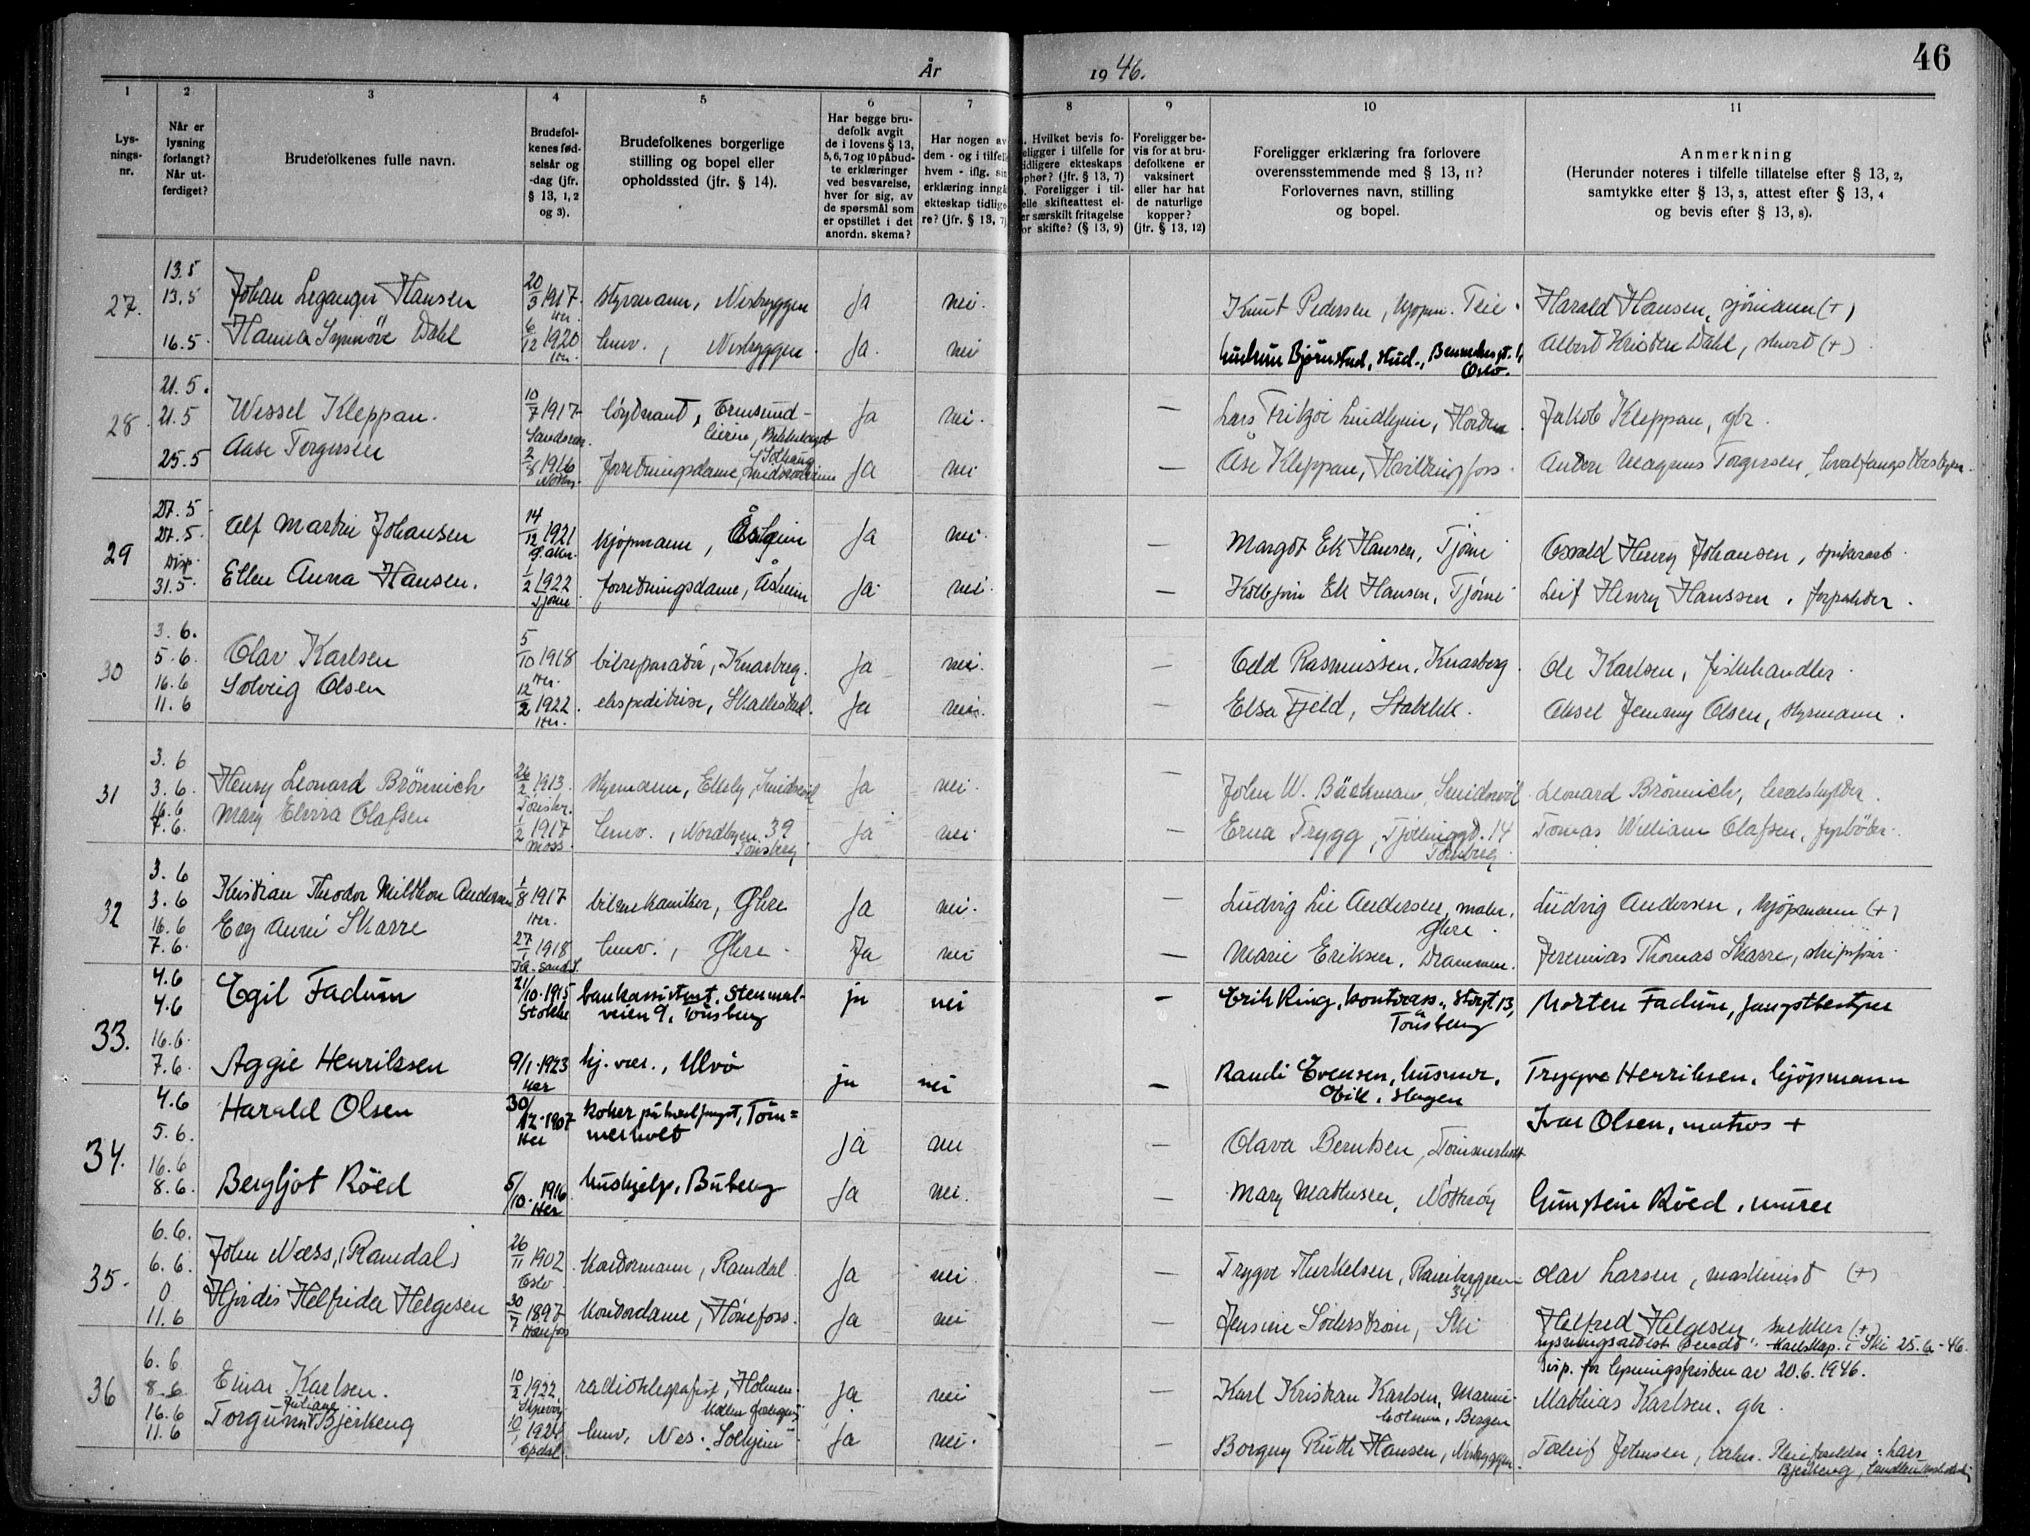 År 1946.
46
1 2 3 4 5 6 7 8 9 10 11
Lys-
nings-
nr.
Når er
lysning
forlangt?
Når ut-
ferdiget?
Brudefolkenes fulle navn.
Brudefol-
kenes fød-
selsår og
-dag (jfr.
§ 13, 1, 2
og 3).
Brudefolkenes borgerlige
stilling og bopel eller
opholdssted (jfr. § 14).
Har begge bru-
defolk avgit
de i lovens § 13,
5, 6, 7 og 10 påbud-
te erklæringer
ved besvarelse,
hver for sig, av
de spørsmål som
er opstillet i det
anordn. skema?
Har nogen av
dem - og i tilfelle
hvem - iflg. sin
erklæring inngå
ekteskap tidlige
re? (jfr. § 13, 7)
. Hvilket bevis fo-
eligger i tilfelle for
idligere ekteskaps
phør? (jfr. § 13, 7)
. Foreligger i til-
elle skifteattest el-
er særskilt fritagelse
or skifte? (§ 13, 9)
Foreligger be-
vis for at bru-
defolkene er
vaksinert
eller har hat
de naturlige
kopper?
(jfr. § 13, 12)
Foreligger erklæring fra forlovere
overensstemmende med § 13, 11?
Forlovernes navn, stilling
og bopel.
Anmerkning
(Herunder noteres i tilfelle tillatelse efter § 13, 2,
samtykke efter § 13, 3, attest efter § 13, 4
og bevis efter § 13, 8).
27. 13.5 13.5 Johan Leganger Hansen 20/3 1917 Her. styrmann, Nesbryggen Ja nei. Knut Pedersen, kjøpm. Teie. Harald Hansen, sjømann (+)
16.5 Hanna Synnøve Dahl 6/12 1920 Her. hmv., Nesbryggen Ja. nei Gudrun Bjørnstad, stud., Oslo. Albert Kristen Dahl, stuert (+)
28 21.5. 21.5 Wessel Kleppan. 10/7 1917 løytnant, Bekkelaget Ja nei. — Lars Fritzøe Lindhjem, Horten. Jakob Kleppan, gbr.
25.5 Aase Torgersen 2/8 1916 forretningsdame, Solhaug Ja nei — Åse Kleppan, Hvittingfoss. Anders Magnus Torgersen, hvalfangstbestyrer.
29 27.5 27.5. Alf Martin Johansen 14/12 1921 kjøpmann, Åsheim Ja nei. — Margot Ek Hansen, Tjøme Osvald Henry Johansen,
Disp. 31.5. Ellen Anna Hansen. 1/2 1922 Tjøme forretningsdame, Åsheim Ja nei. Ek Hansen, Tjøme Leif Henry Hanssen, forpakter.
30 3.6. 5.6. Olav Karlsen 5/10 1918 Her. bilreparatør, Knarberg. Ja nei. — Odd Rasmussen, Knarberg. Ole Karlsen, fiskehandler.
16.6 11.6 Solveig Olsen 12/2 1922. Her. ekspeditrise, Skallestad. Ja nei. — Elsa Fjeld, Stabekk. Aksel Jenmy Olsen, styrmann.
31 3.6 3.6. Henry Leonard Brönnich 26/2 1913. Tønsbr. styrmann, Elleby, Smidsrød Ja nei. — John W. Bäckman, Smidsrød. Leonard Brönnich, hvalskytter.
16.6 7.6. Mary Elvira Olafsen 1/2 1917 Moss hmv., Nordbyen 39 Tønsberg Ja nei. — Erna Trygg, Tjøllinggt. 14 Tønsberg Tomas William Olafsen, fyrbøter.
32 3.6 3.6 Kristian Theodor Milthon Andersen 1/8 1917 Her. bilmekaniker, Øhre Ja nei. — Ludvig Lie Andersen, maler, Øhre. Ludvig Andersen, kjøpmann (+)
16.6 7.6. Evy Anni Skarre 27/1 1918 Kr.sand S. hmv., Øhre Ja nei — Marie Eriksen, Drammen. Jeremias Thomas Skarre, skipsfører.
33. 4.6 4.6 Egil Fadum 21/10.1915 Stokke bankassistent. Stenmal-
veien 9, Tönsberg ja nei — Erik Ring, kontorass., Storgt. 13, Tönsberg Morten Fadum, fangstbestyrer
16.6. 7.6. Aggie Henriksen 9/1.1923 Her hj. vær., Ulvö ja nei — Randi Evensen, husmor, Eik, Slagen Trygve Henriksen, kjöpmann
34. 4.6 5.6. Harald Olsen 30/12.1907 Her koker på hvalfangst, Töm=
merholt Ja nei — Olava Berntsen, Tømmerholt Ivar Olsen, matros +
16.6 8.6. Bergljot Röed 5/10.1916. Her hushjelp, Buberg Ja nei. — Mary Mathisen, Nøtterøy Gunstein Röed, murer
35. 6.6. 6.6. John Næss, (Ramdal) 26/11 1902 Oslo kontormann, Ramdal Ja nei. — Trygve Thurkelsen, 34 Olav Larsen, maskinist (+)
0 11.6 Hjördis Helfrida Helgesen 30/7 1897 Hønefoss kontordame, Hönefoss. Ja nei — Jensine Söderström, Ski Helfred Helgesen snekker (+)
lysningsattest sendt Ski 25.6-46.
Disp. for lysningsfristen av 20.6.1946.
36 6.6 8.6 Einar Karlsen. 10/2 1922. Skjervøy radiotelegrafist, Holmen Ja nei — Karl Kristian Karlsen, Bergen Mathias Karlsen, gbr.
16.6 11.6 Torgunn Juliane Bjerkeng 10/1 1924 hmv, Nes. Solhjem Ja nei. — Borgny Ruth Hansen, Nesbryggen. Toleif Johansen, Pleieforelder: Lars Bjerkeng,